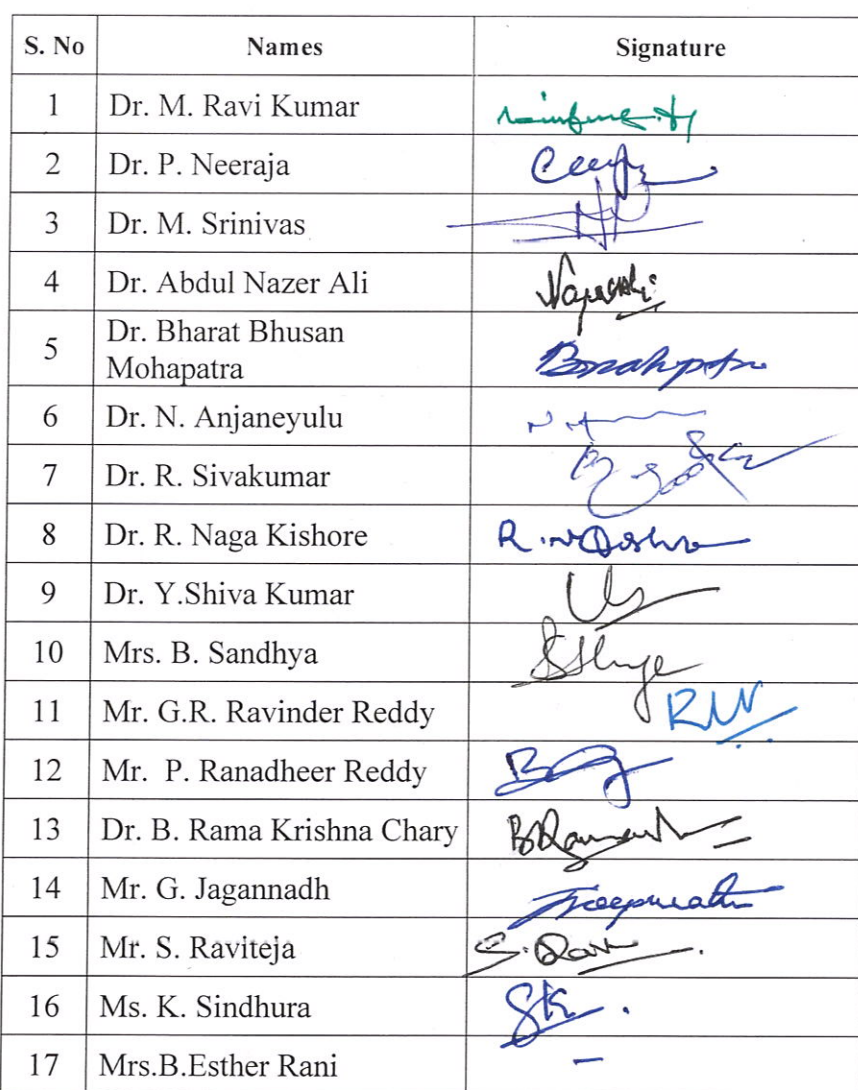 S. No Names Signature
1 Dr. M. Ravi Kumar
2 Dr. P. Neeraja
3 Dr. M. Srinivas
4 Dr. Abdul Nazer Ali
5 Dr. Bharat Bhusan
Mohapatra
6 Dr. N. Anjaneyulu
7 Dr. R. Sivakumar
8 Dr. R. Naga Kishore
9 Dr. Y.Shiva Kumar
10 Mrs. B. Sandhya
11 Mr. G.R. Ravinder Reddy
12 Mr. P. Ranadheer Reddy
13 Dr. B. Rama Krishna Chary
14 Mr. G. Jagannadh
15 Mr. S. Raviteja
16 Ms. K. Sindhura
17 Mrs.B.Esther Rani –